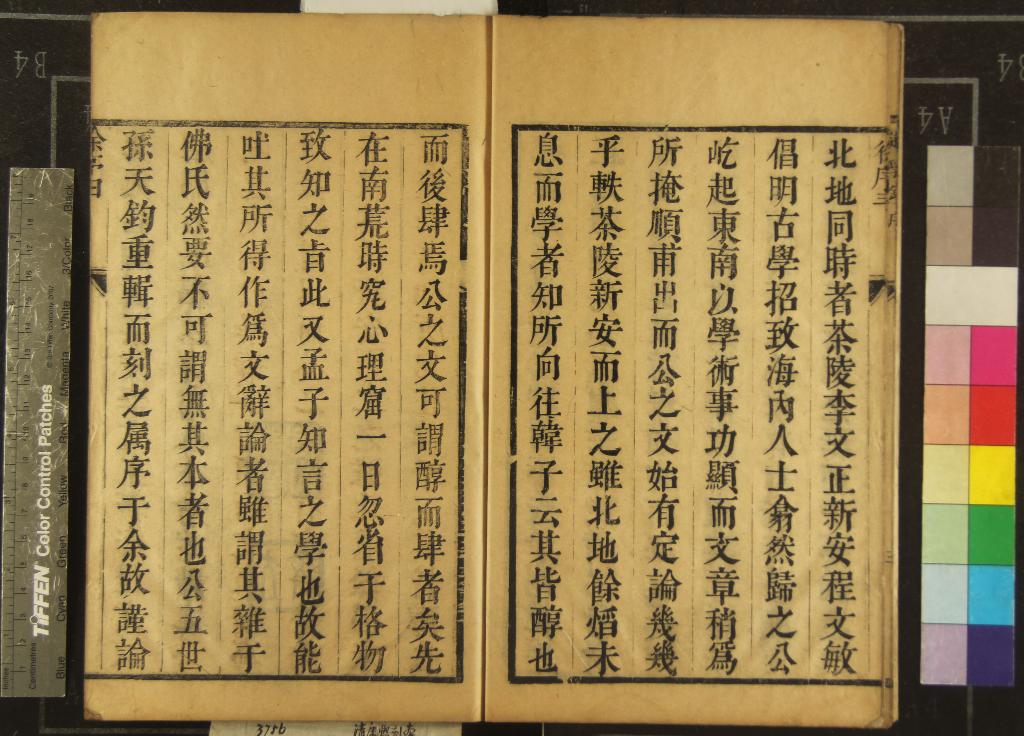 北地同時者茶陵李文正新安程文敏
倡明古學招致海內人士翕然歸之公
屹起東南以學術事功顯而文章稍爲
所掩順甫出而公之文始有定論幾幾
乎軼茶陵新安而上之雖北地餘熖未
息而學者知所向往韓子云其皆醇也
而後肆焉公之文可謂醇而肆者矣先
在南荒時究心理窟一日忽省于格物
致知之旨此又孟子知言之學也故能
吐其所得作爲文辭論者雖謂其雜于
佛氏然要不可謂無其本者也公五世
孫天鈞重輯而刻之属序于余故謹論
B4
A4
TIFFEN Color Control Patches
Blue
Cyan
Green
Yellow
Red
Magenta
White
3/Color
Black
Centimetres
Inches
3756